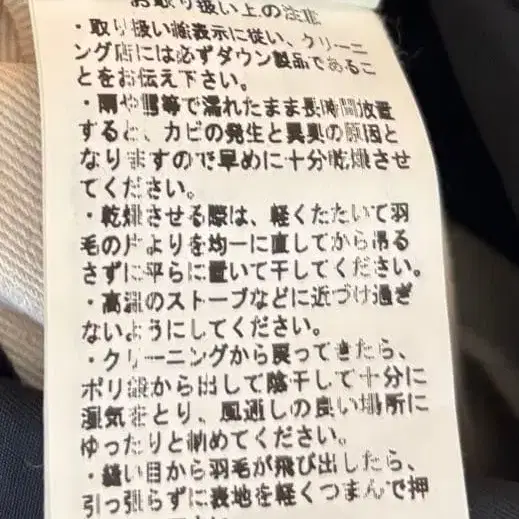 お取り扱い上の注意
・取り扱い絵表示に従い、クリーニ
ング店には必ずダウン製品であるこ
とをお伝え下さい。
・雨や雪等で濡れたまま長時間放置
すると、カビの発生と異臭の原因と
なりますので早めに十分乾燥させ
てください。
・乾燥させる際は、軽くたたいて羽
毛の片よりを均一に直してから吊る
さずに平らに置いて干してください。
・高温のストーブなどに近づけ過ぎ
ないようにしてください。
・クリーニングから戻ってきたら、
ポリ袋から出して陰干して十分に
湿気をとり、風通しの良い場所に
ゆったりと納めてください。
・縫い目から羽毛が飛び出したら、
引っ張らずに表地を軽くつまんで押